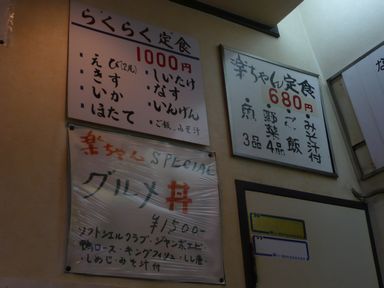 らくらく定食
1000円
・えび(2尾)
・きす
・いか
・ほたて
・しいたけ
・なす
・いんげん
・ご飯、みそ汁
楽ちゃん定食
680円
・魚 3品
・野菜 4品
・ご飯
・みそ汁付
楽ちゃん SPECIAL
グルメ丼
¥1500-
ソフトシェルクラブ・ジャンボエビ
鴨ロース・キングフィッシュ・しし唐
・しめじ・みそ汁付